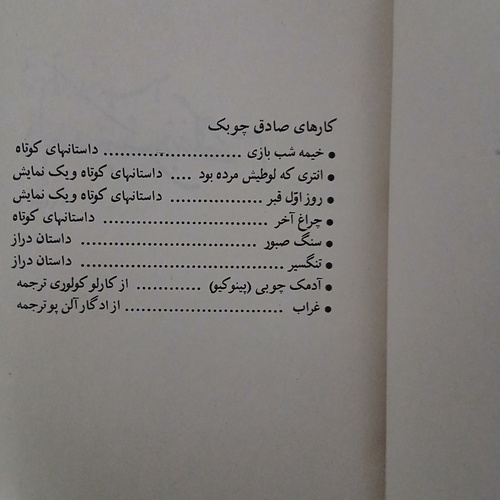 کارهای صادق چوبک
● خیمه شب بازی ......................... داستانهای کوتاه
● انتری که لوطیش مرده بود .... داستانهای کوتاه و یک نمایش
● روز اوّل قبر .................. داستانهای کوتاه و یک نمایش
● چراغ آخر ............................... داستانهای کوتاه
● سنگ صبور ................................ داستان دراز
● تنگسیر ..................................... داستان دراز
● آدمک چوبی (پینوکیو) ............ از کارلو کولوری ترجمه
● غراب .............................. از ادگار آلن پو ترجمه